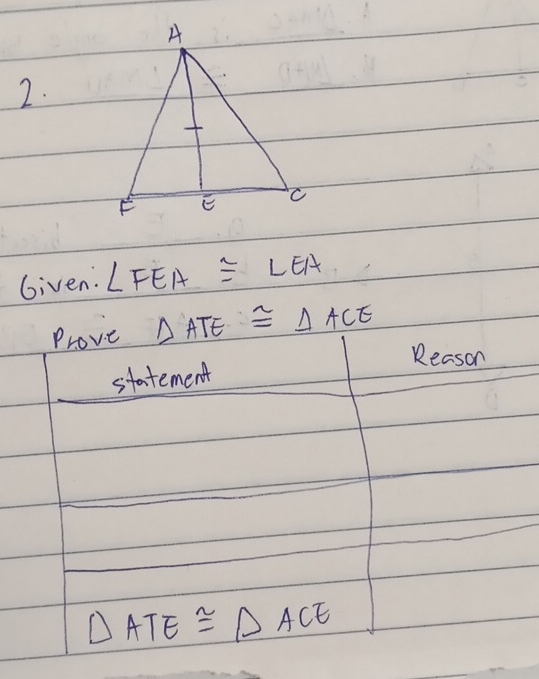 2.
A
F E C
Given: ∠FEA ≅ LEA
Prove △ ATE ≅ △ ACE
statement Reason
△ ATE ≅ △ ACE